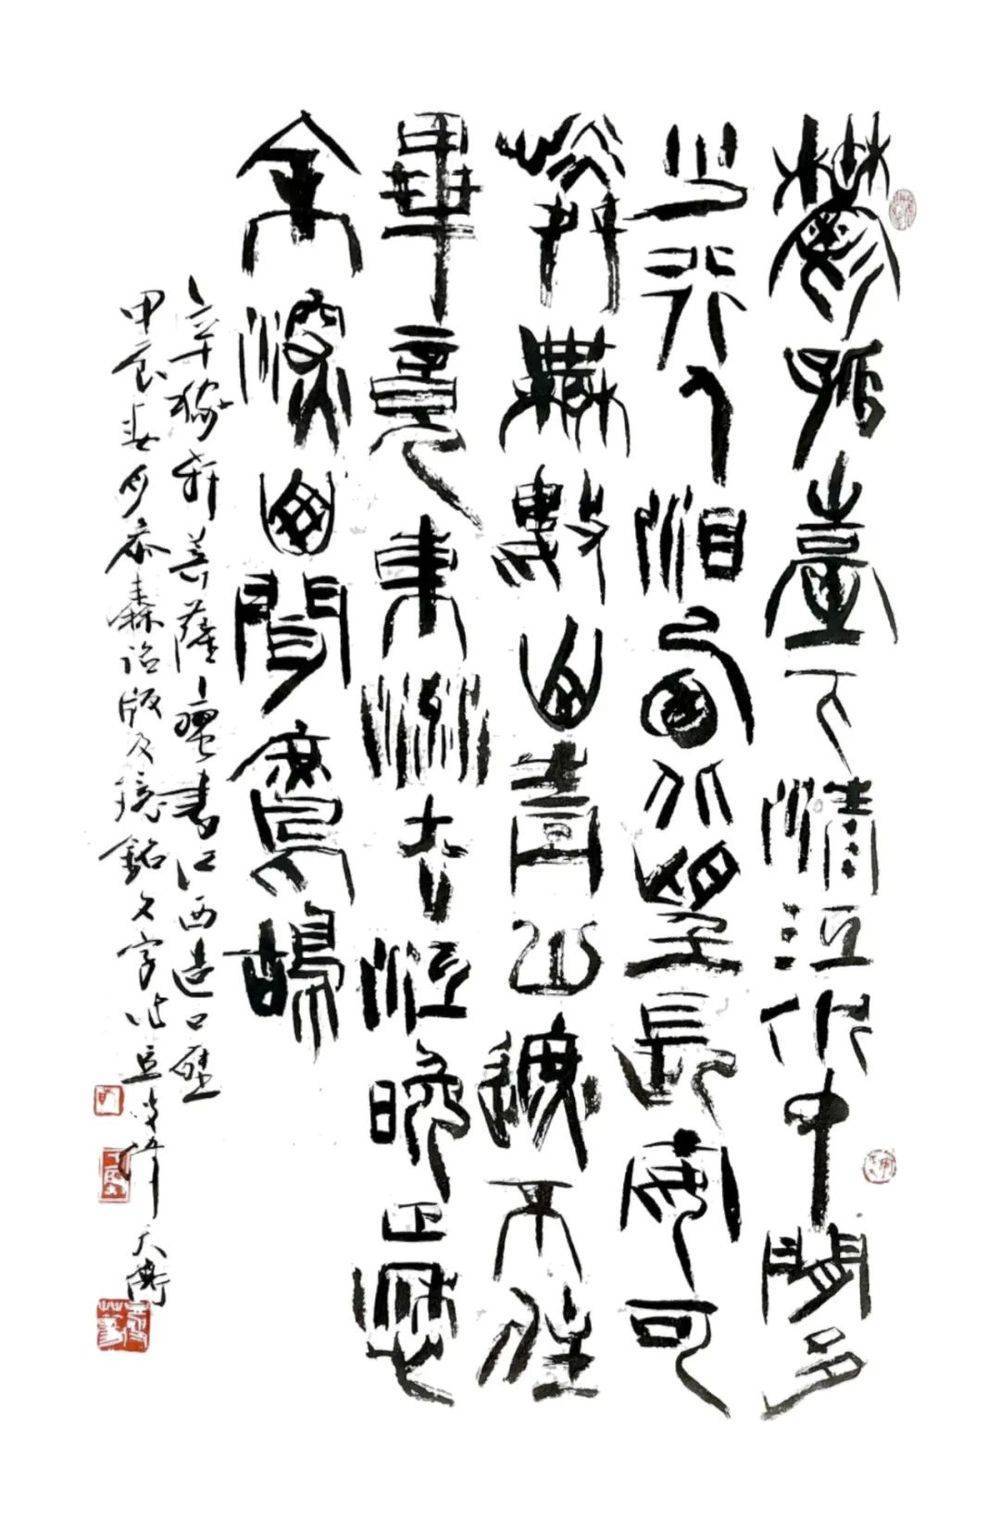 鬱孤臺下清江水中間多
少行人泪西北望長安可
憐無數山青山遮不住
畢竟東流去江晚正愁
余深山聞鷓鴣
辛稼軒菩薩蠻書江西造口壁
甲辰 詔版及 銘文字